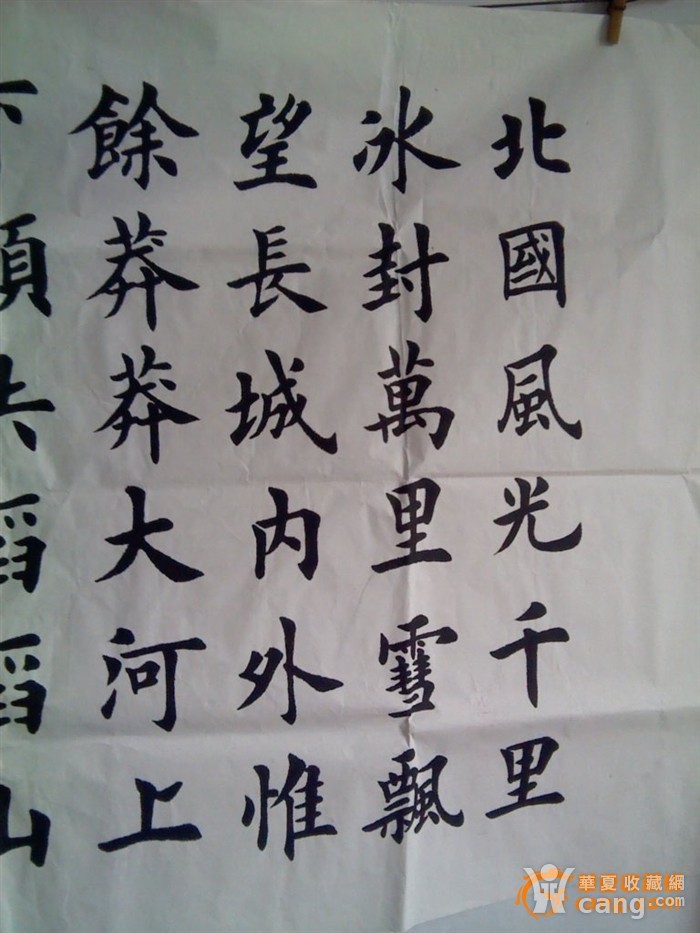 北國風光千里
冰封萬里雪飄
望長城内外惟
餘莽莽大河上
下頓失滔滔山
華夏收藏網
cang.com